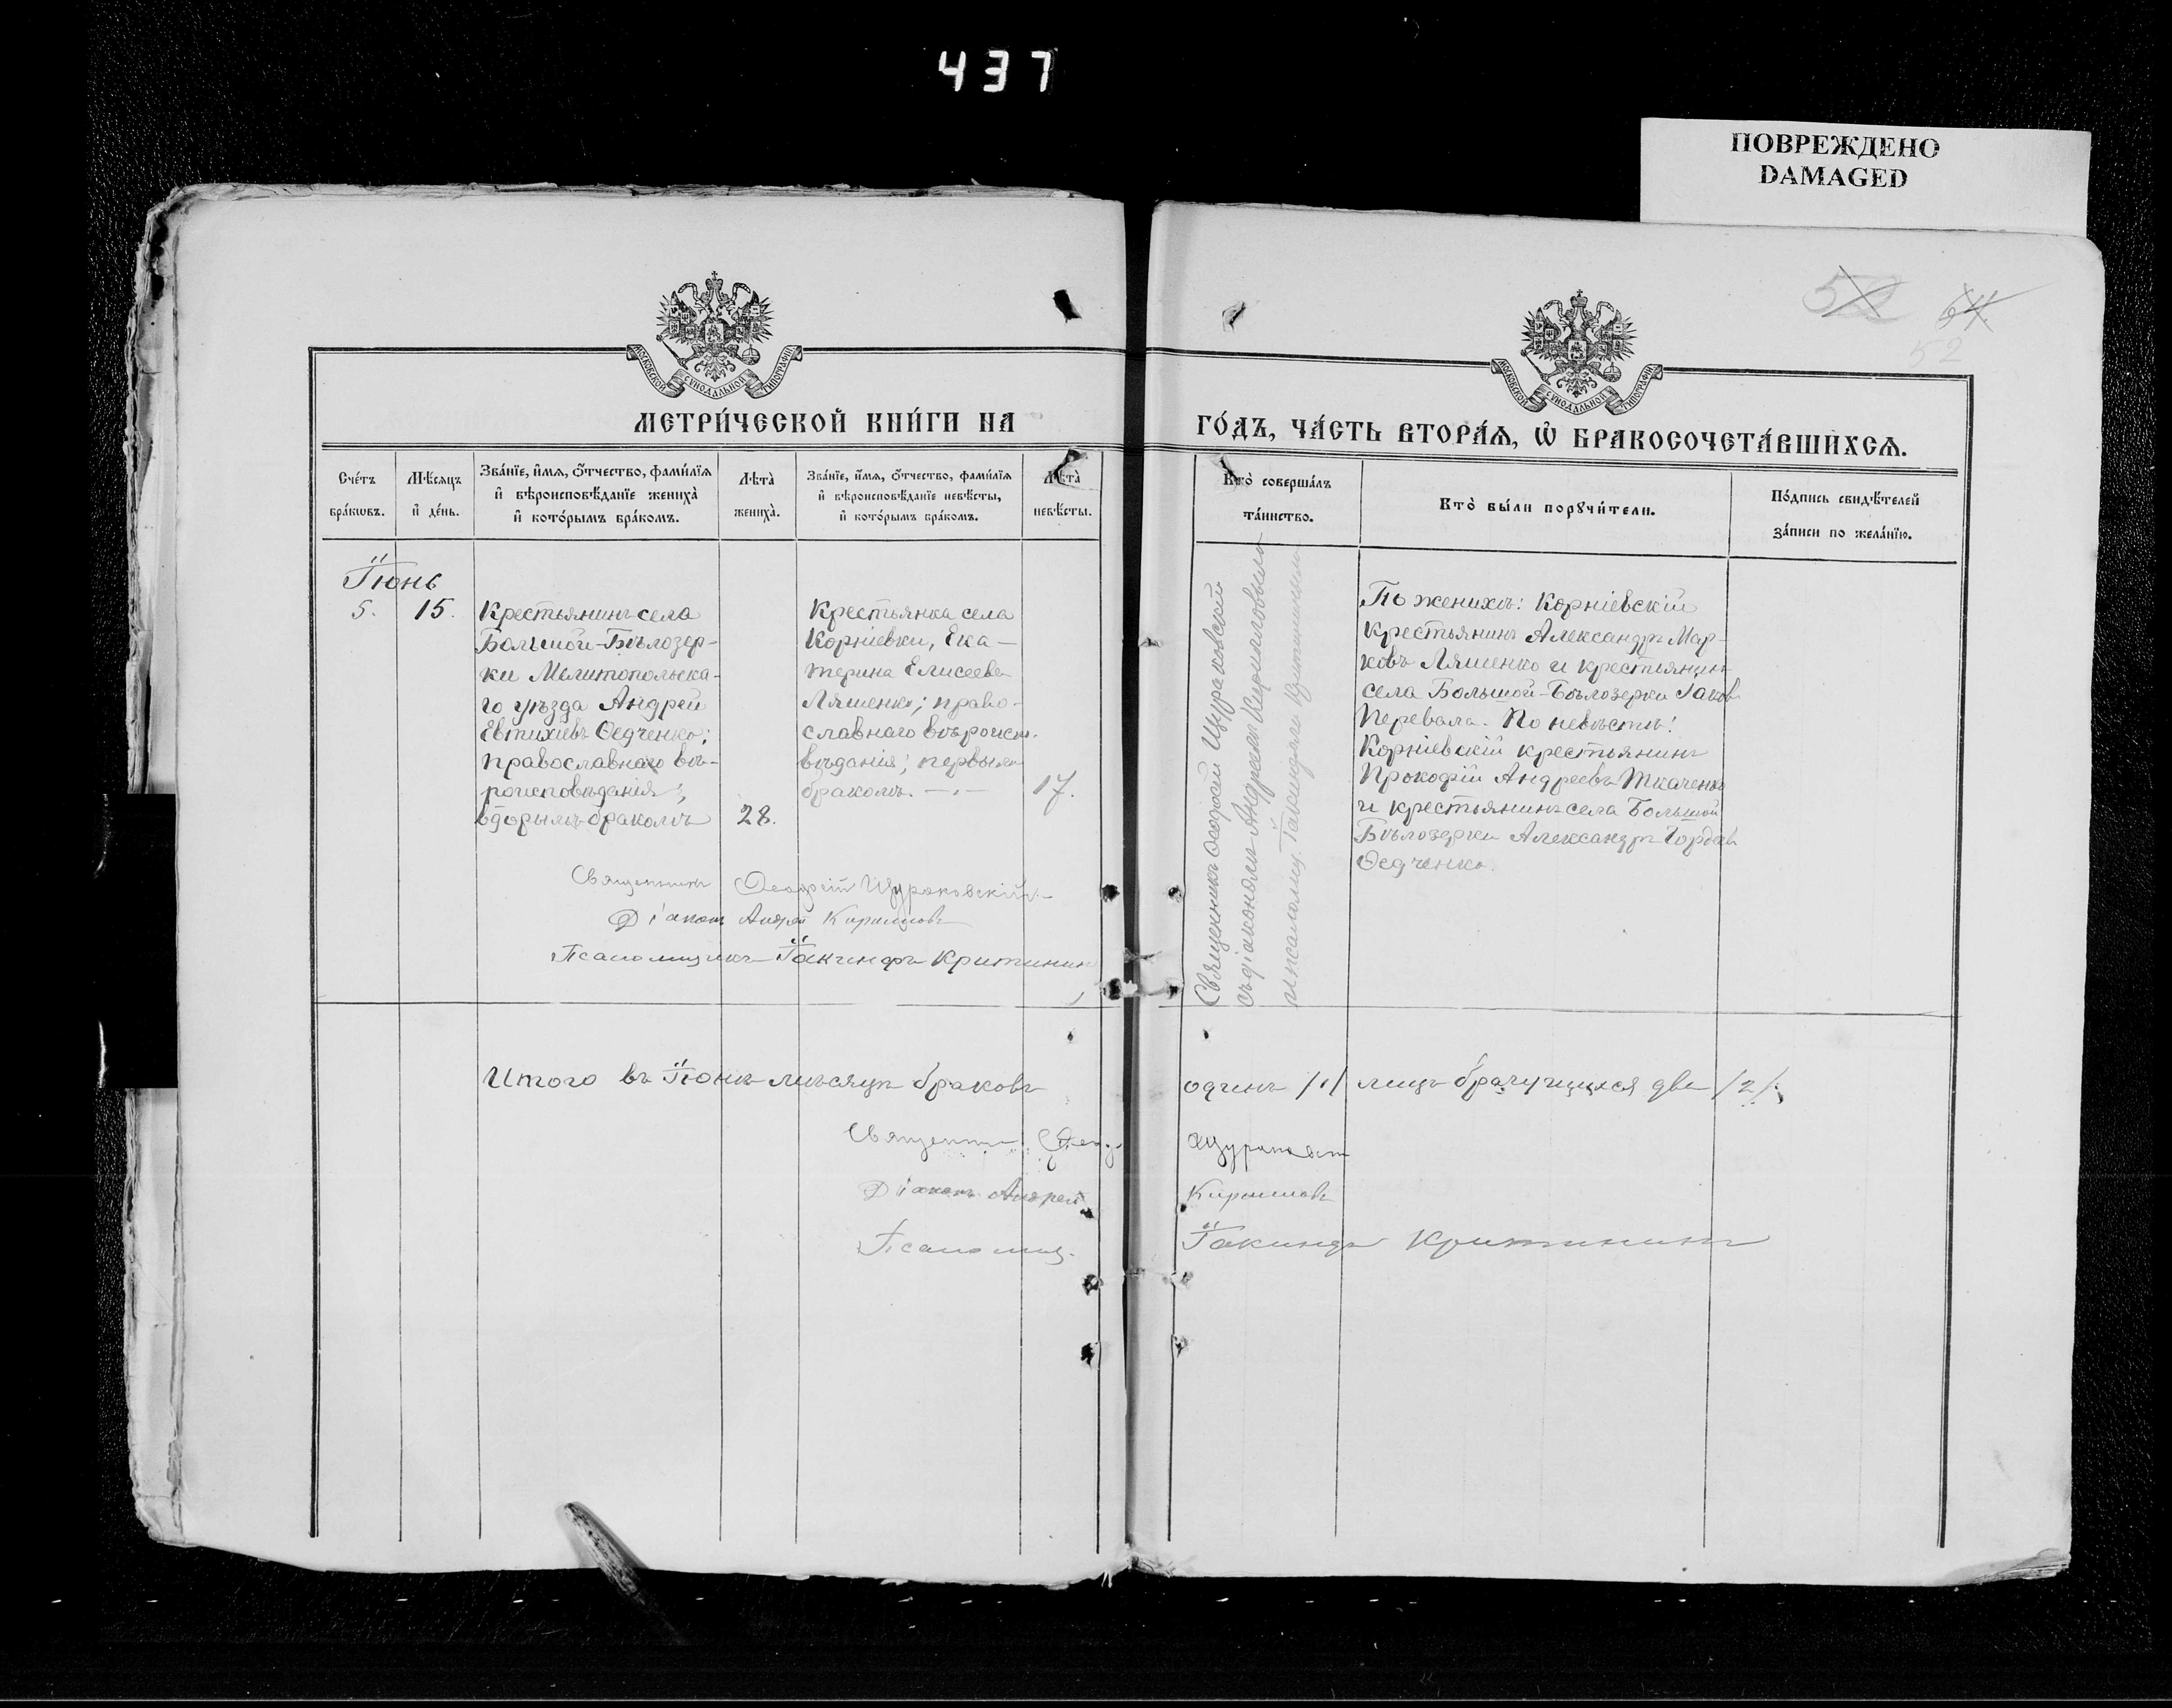 437
ПОВРЕЖДЕНО
DAMAGED
5
64
52
МОСКОВСКОЙ СУНОДАЛЬНОЙ ТИПОГРАФІИ
МОСКОВСКОЙ СУНОДАЛЬНОЙ ТИПОГРАФІИ
МЕТРИ́ЧЕСКОЙ КНИ́ГИ НА
ГО́ДЪ, ЧА́СТЬ ВТОРА́Ѧ, Ѡ҆ БРАКОСОЧЕТА́ВШИХСѦ.
Сче́тъ
бра́кѡвъ.
Мѣ́сяцъ
и҆ де́нь.
Зва́нїе, и҆́мѧ, ѻ҆́тчество, фами́лїѧ
и҆ вѣроисповѣ́данїе жениха̀
и҆ кото́рымъ бра́комъ.
Лѣта̀
жениха̀.
Зва́нїе, и҆́мѧ, ѻ҆́тчество, фами́лїѧ
и҆ вѣроисповѣ́данїе невѣ́сты,
и҆ кото́рымъ бра́комъ.
Лѣта̀
невѣ́сты.
Кто̀ соверша́лъ
та́инство.
Кто̀ бы́ли порꙋчи́тели.
По́дпись свидѣ́телей
за́писи по жела́нїю.
Іюнь
5.
15.
Крестьянинъ села
Большой-Бѣлозер-
ки Мелитопольска-
го уѣзда Андрей
Евтихіевъ Ѳедченко;
православнаго вѣ-
роисповѣданія;
вторымъ бракомъ
28.
Крестьянка села
Корніевки, Ека-
терина Елисеева
Ляшенко; право-
славнаго вѣроиспо-
вѣданія; первымъ
бракомъ. —.—
17.
Священникъ Ѳеодосій Щураковскій
съ діакономъ Андреемъ Кирилловымъ
и псаломщ. Іакинфомъ Критининымъ
По женихѣ: Корніевскій
крестьянинъ Александръ Мар-
ковъ Ляшенко и крестьянинъ
села Большой-Бѣлозерки Іаковъ
Перевала. По невѣстѣ:
Корніевскій крестьянинъ
Прокофій Андреевъ Ткаченко
и крестьянинъ села Большой
Бѣлозерки Александръ Гордѣевъ
Ѳедченко.
Священникъ Ѳеодосій Щураковскій
Діаконъ Андрей Кирилловъ
Псаломщикъ Іакинфъ Критининъ
Итого въ Іюнѣ мѣсяцѣ браковъ одинъ /1/ лицъ брачущихся два /2/.
Священникъ Ѳеод. Щураковскій
Діаконъ Андрей Кирилловъ
Псаломщ. Іакинфъ Критининъ